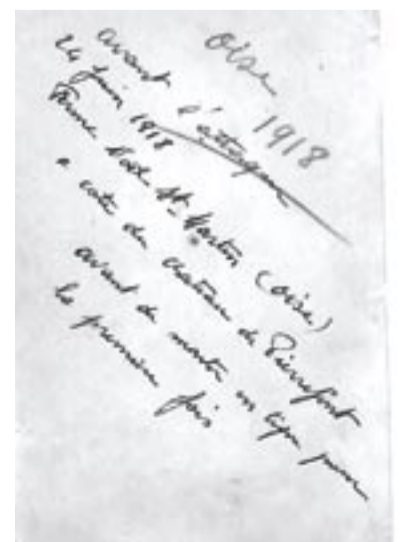 Oise
1918
avant l'attaque
24 juin 1918
Ferme St Martin (Oise)
a coté du chateau de Pierrefont
avant de monter en ligne pour
la première fois